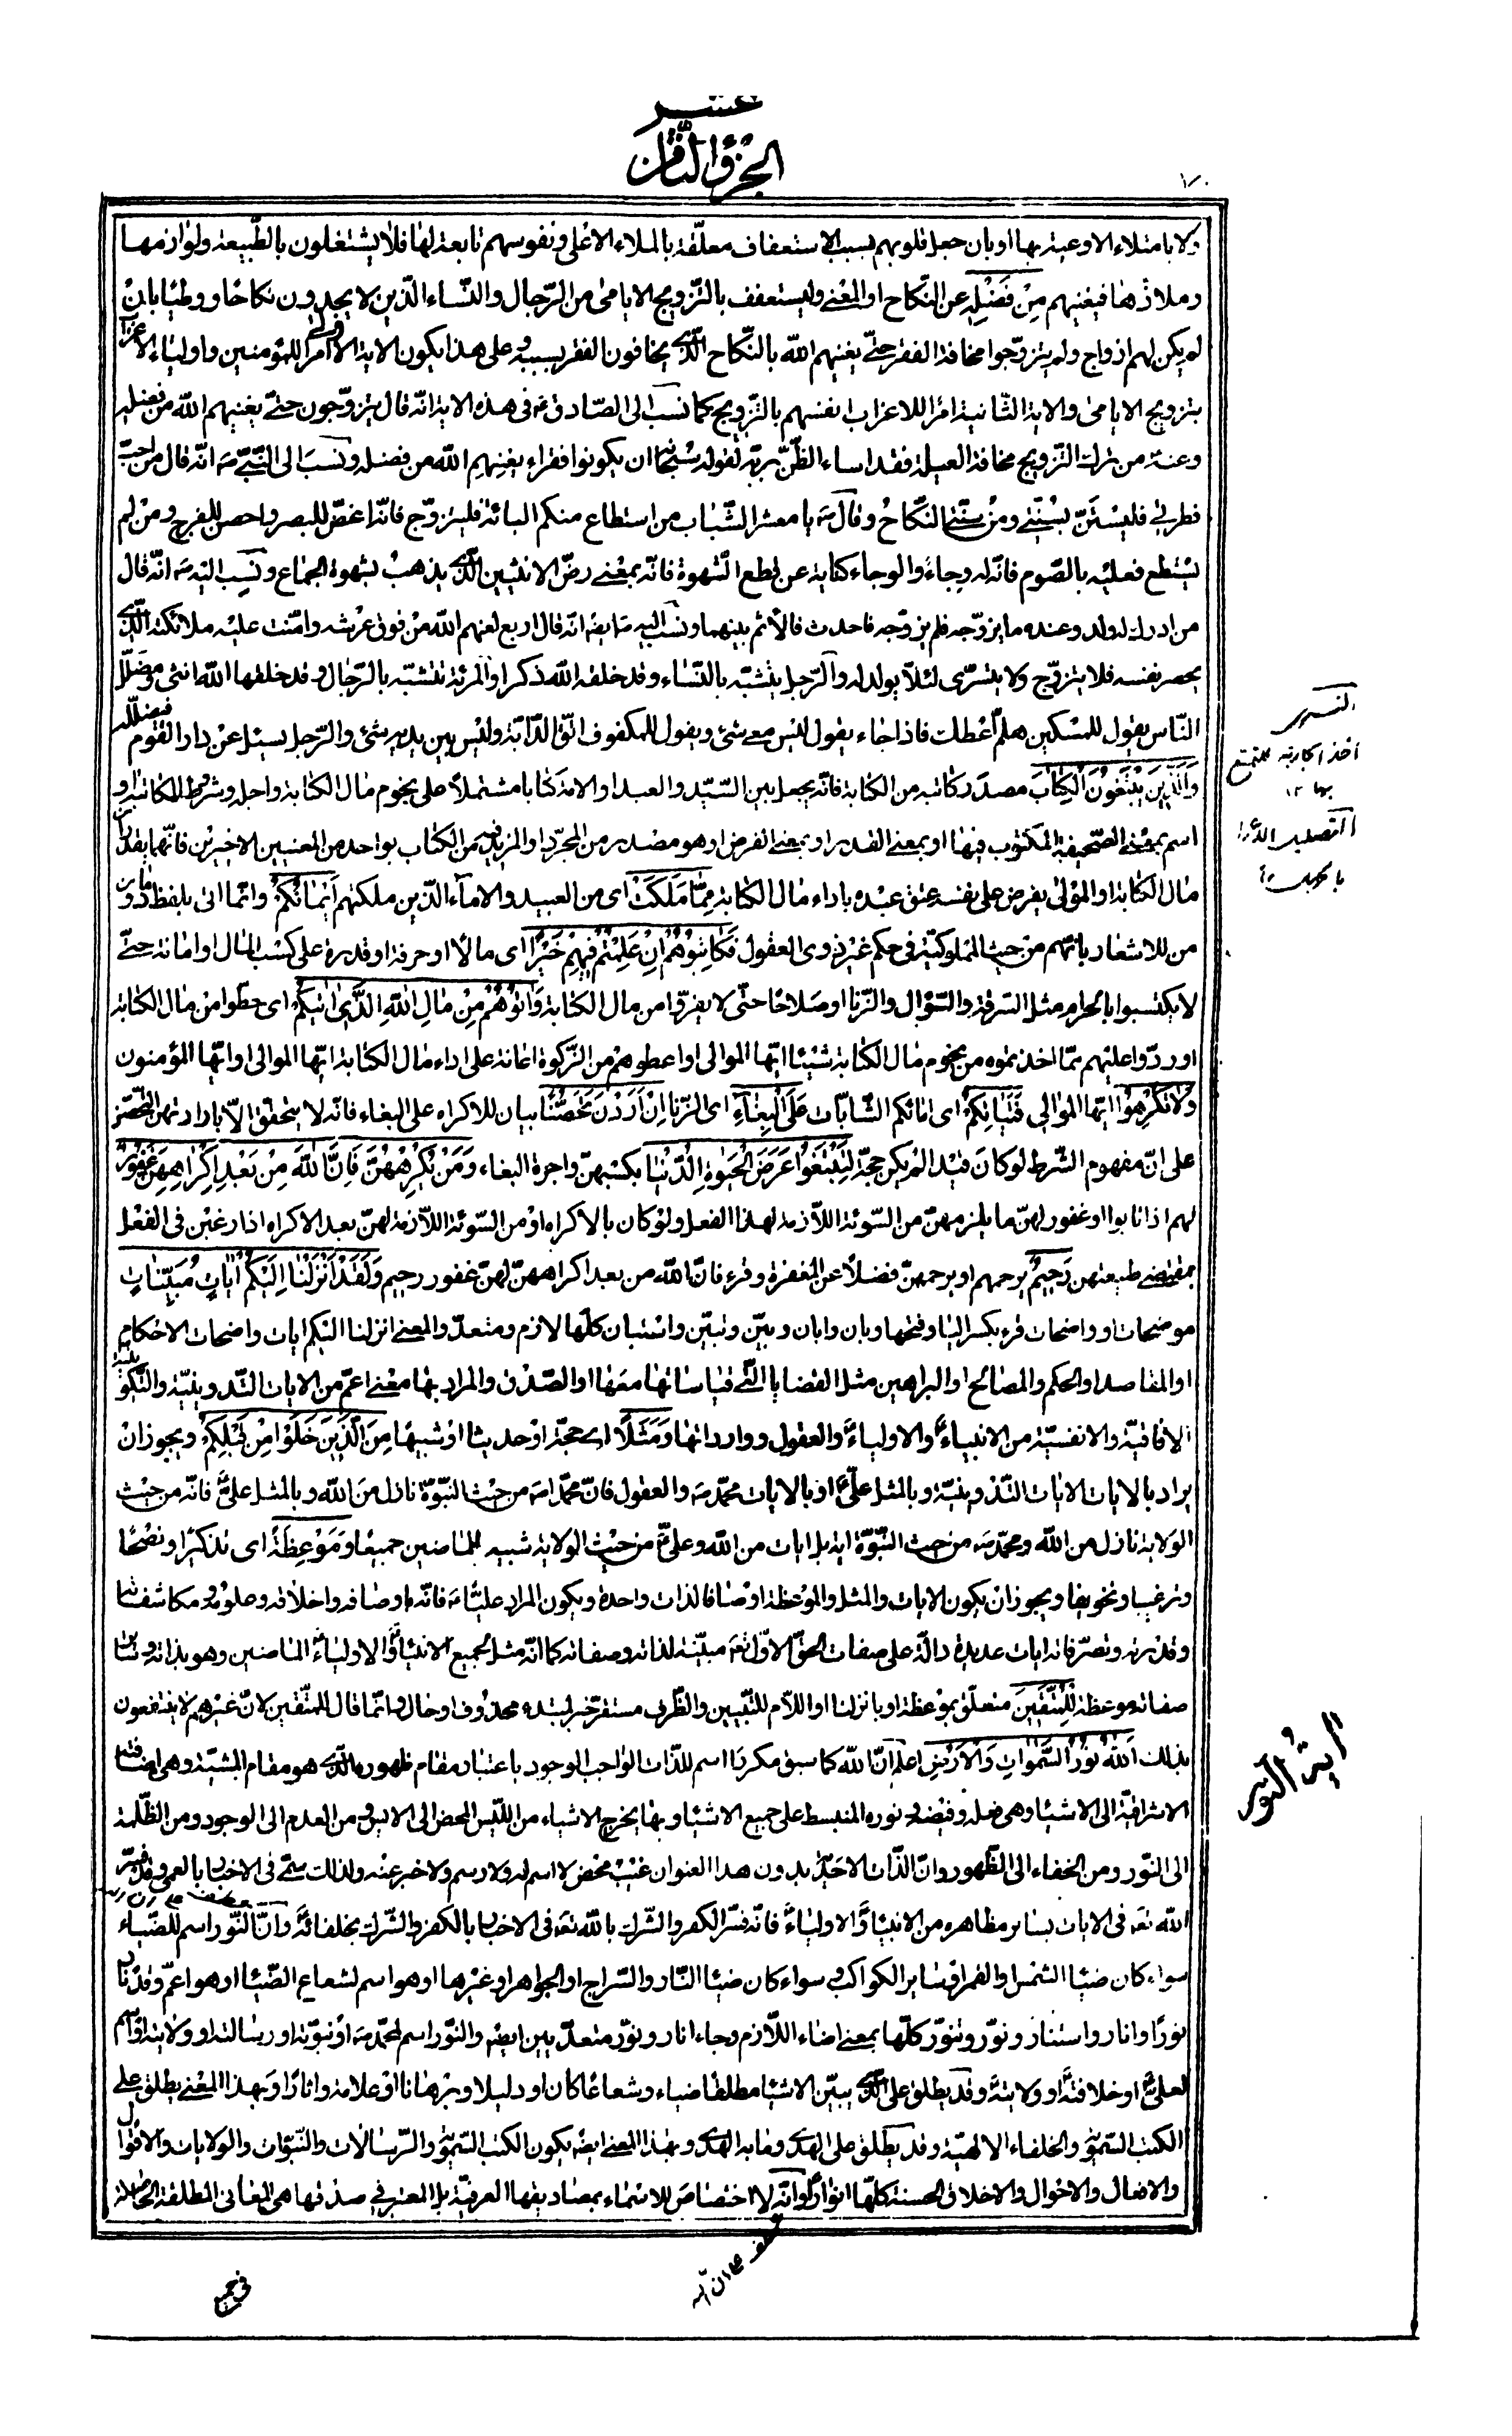 الجزء الثامن عشر
ولا بامتلاء الاوعية بها او بان جعل قلوبهم بسبب الاستعفاف معلّقة بالملاء الاعلى ونفوسهم تابعة لها فلا يشتغلون بالطّبيعة ولوازمها
وملاذّها فيغنيهم مِنْ فَضْلِهِ عن النّكاح او المعنى وليستعفف بالتّزويج الايامى من الرّجال والنّساء الّذين لا يجدون نكاحًا ووطيًا بان
لم يكن لهم ازواج ولم يتزوّجوا مخافة الفقر حتّى يغنيهم الله بالنّكاح الّذى يخافون الفقر بسببه وعلى هذا يكون الاية الاولى امرًا للمؤمنين واولياء الاعزاب
بتزويج الايامى والاية الثّانية امرًا للاعزاب انفسهم بالتّزويج كما نسب الى الصّادق ع فى هذه الاية انّه قال يتزوّجون حتّى يغنيهم الله من فضله
وعنه من ترك التّزويج مخافة العيلة فقد اساء الظّنّ بربّه لقوله سبحانه ان يكونوا فقراء يغنهم الله من فضله ونسب الى النّبىّ ص انّه قال من احبّ
فطرتى فليستنّ بسنّتى ومن سنّتى النّكاح وقال ص يا معشر الشّباب من استطاع منكم الباءة فليتزوّج فانّه اغضّ للبصر واحصن للفرج ومن لم
يستطع فعليه بالصّوم فانّه له وجاء والوجاء كناية عن قطع الشّهوة فانّه بمعنى رضّ الانثيين الّذى يذهب بشهوة الجماع ونسب اليه ص انّه قال
من ادرك له ولد وعنده ما يزوّجه فلم يزوّجه فاحدث فالاثم بينهما ونسب اليه ص ايضًا انّه قال اربع لعنهم الله من فوق عرشه وامّنت عليه ملائكته الّذى
يحصر نفسه فلا يتزوّج ولا يتسرّى لئلّا يولد له والرّجل يتشبّه بالنّساء وقد خلقه الله ذكرًا والمرئة تتشبّه بالرّجال وقد خلقها الله انثى ومضلّل
النّاس يقول للمسكين هلمّ اعطك فاذا جاء يقول ليس معى شىء ويقول للمكفوف اتّق الدّابّة وليس بين يديه شىء والرّجل يسئل عن دار القوم فيضلّله
وَالَّذِينَ يَبْتَغُونَ الْكِتَابَ مصدر كاتبه من الكتابة فانّه يجعل بين السّيّد والعبد او الامة كتابًا مشتملًا على نجوم مال الكتابة واجله وشروط المكاتبة او
اسم بمعنى الصّحيفة المكتوب فيها او بمعنى القدر او بمعنى الفرض او هو مصدر من المجرّد او المزيد فيه من الكتاب بواحد من المعنيين الاخيرين فانّهما يقدّران
مال الكتابة او المولى يفرض على نفسه عتق عبده باداء مال الكتابة مِمَّا مَلَكَتْ اى من العبيد والاماء الّذين ملكتهم اَيْمَانُكُمْ وانّما اتى بلفظ ما دون
من للاشعار بانّهم من حيث المملوكيّة فى حكم غير ذوى العقول فَكَاتِبُوهُمْ اِنْ عَلِمْتُمْ فِيهِمْ خَيْرًا اى مالًا او حرفة او قدرة على كسب المال او امانة حتّى
لا يكتسبوا بالحرام مثل السّرقة والسّؤال والزّنا او صلاحًا حتّى لا يفرّوا من مال الكتابة وَآتُوهُمْ مِنْ مَالِ اللهِ الَّذِى آتٰيكُمْ اى حطّوا من مال الكتابة
او ردّوا عليهم ممّا اخذتموه من نجوم مال الكتابة شيئًا ايّها الموالى او اعطوهم من الزّكوة اعانة على اداء مال الكتابة ايّها الموالى او ايّها المؤمنون
وَلَا تُكْرِهُوا ايّها الموالى فَتَيَاتِكُمْ اى اماءكم الشّابّات عَلَى الْبِغَاءِ اى الزّنا اِنْ اَرَدْنَ تَحَصُّنًا بيان للاكراه على البغاء فانّه لا يتحقّق الّا بارادتهنّ التّحصّن
على انّ مفهوم الشّرط لو كان قيد لم يكن حجّة لِتَبْتَغُوا عَرَضَ الْحَيٰوةِ الدُّنْيَا بكسبهنّ واجرة البغاء وَمَنْ يُكْرِهْهُنَّ فَاِنَّ اللهَ مِنْ بَعْدِ اِكْرَاهِهِنَّ غَفُورٌ
لهم اذا تابوا او غفور لهنّ ما يلزمهنّ من السّوئة اللّازمة لهذا الفعل ولو كان بالاكراه او من السّوئة اللّازمة لهنّ بعد الاكراه اذا رغبن فى الفعل
بمقتضى طبيعتهنّ رَحِيمٌ يرحمهم او يرحمهنّ فضلًا عن المغفرة وقرء فانّ الله من بعد اكراههنّ لهنّ غفور رحيم وَلَقَدْ اَنْزَلْنَا اِلَيْكُمْ آيَاتٍ مُبَيِّنَاتٍ
موضحات او واضحات قرء بكسر اليا وفتحها وبان وابان وبيّن وتبيّن واستبان كلّها لازم ومتعدّ والمعنى انزلنا اليكم ايات واضحات الاحكام
او المقاصد او الحكم والمصالح او البراهين مثل القضايا الّتى قياساتها معها او الصّدق والمراد بها معنى اعمّ من الايات التّدوينيّة والتّكوينيّة
الافاقيّة والانفسيّة من الانبياء والاولياء والعقول ووارداتها وَمَثَلًا اى حجّة او حديثًا او شبيهًا مِنَ الَّذِينَ خَلَوْا مِنْ قَبْلِكُمْ ويجوز ان
يراد بالايات الايات التّدوينيّة وبالمثل علىّ ع او بالايات محمّد ص والعقول فانّ محمّدًا ص من حيث النّبوّة نازل من الله وبالمثل علىّ ع فانّه من حيث
الولاية نازل من الله ومحمّد ص من حيث النّبوّة اية بل ايات من الله وعلىّ ع من حيث الولاية شبيه للماضين جميعًا وَمَوْعِظَةً اى تذكيرًا ونصحًا
وترغيبًا وتخويفًا ويجوز ان يكون الايات والمثل والموعظة اوصافًا لذات واحدة ويكون المراد عليًّا ع فانّه باوصافه واخلاقه وعلومه ومكاشفاته
وقدرته وتصرّفاته ايات عديدة دالّة على صفات الحقّ الاوّل تعه مبيّنة لذاته وصفاته كما انّه مثل لجميع الانبياء والاولياء الماضين وهو بذاته وبيان
صفاته موعظة لِلْمُتَّقِينَ متعلّق بموعظة او بانزلنا او اللّام للتّبيين والظّرف مستقرّ خبر لمبتدء محذوف او حال وانّما قال للمتّقين لانّ غيرهم لا ينتفعون
بذلك اَللهُ نُورُ السَّمٰوَاتِ وَالْاَرْضِ اعلم انّ الله كما سبق مكرّرًا اسم للذّات الواجب الوجود باعتبار مقام ظهوره الّذى هو مقام المشيّة وهى اضافته
الاشراقيّة الى الاشياء وهى فعله وفيضه ونوره المنبسط على جميع الاشياء وبها يخرج الاشياء من اللّيس المحض الى الايس ومن العدم الى الوجود ومن الظّلمة
الى النّور ومن الخفاء الى الظّهور وانّ الذّات الاحديّة بدون هذا العنوان غيب محض لا اسم له ولا رسم ولا خبر عنه ولذلك سمّى فى الاخبار بالعمى وقد فسّر
الله تعه فى الايات بسائر مظاهره من الانبياء والاولياء فانّه فسّر الكفر والشّرك بالله تعه فى الاخبار بالكفر والشّرك بخلفائه وانّ النّور اسم للضّياء
سواء كان ضياء الشّمس والقمر وسائر الكواكب وسواء كان ضياء النّار والسّراج او الجواهر او غيرها او هو اسم لشعاع الضّياء او هو اعمّ وقد نار
نورًا وانار واستنار ونوّر وتنوّر كلّها بمعنى اضاء اللّازم وجاء انار ونوّر متعدّيين ايضًا والنّور اسم لمحمّد ص او نبوّته او رسالته او ولايته او اسم
لعلىّ ع او خلافته او ولايته وقد يطلق على الّذى يبيّن الاشياء مطلقًا ضياء وشعاعًا كان او دليلًا وبرهانًا او علامة واثارًا وبهذا المعنى يطلق على
الكتب السّمويّة والخلفاء الالهيّة وقد يطلق على الهدى وما به الهدى وبهذا المعنى ايضًا يكون الكتب السّمويّة والرّسالات والنّبوّات والولايات والاقوال
والافعال والاحوال والاخلاق الحسنة كلّها انوارًا وانّه لا اختصاص للاسماء بمصاديقها العرفيّة بل المعتبر فى صدقها هى المعانى المطلقة الحاصلة
التسرى
اخذ الجارية للتمتع
بها ١٢
اية النّور
عطف على ان الله
فى جميع